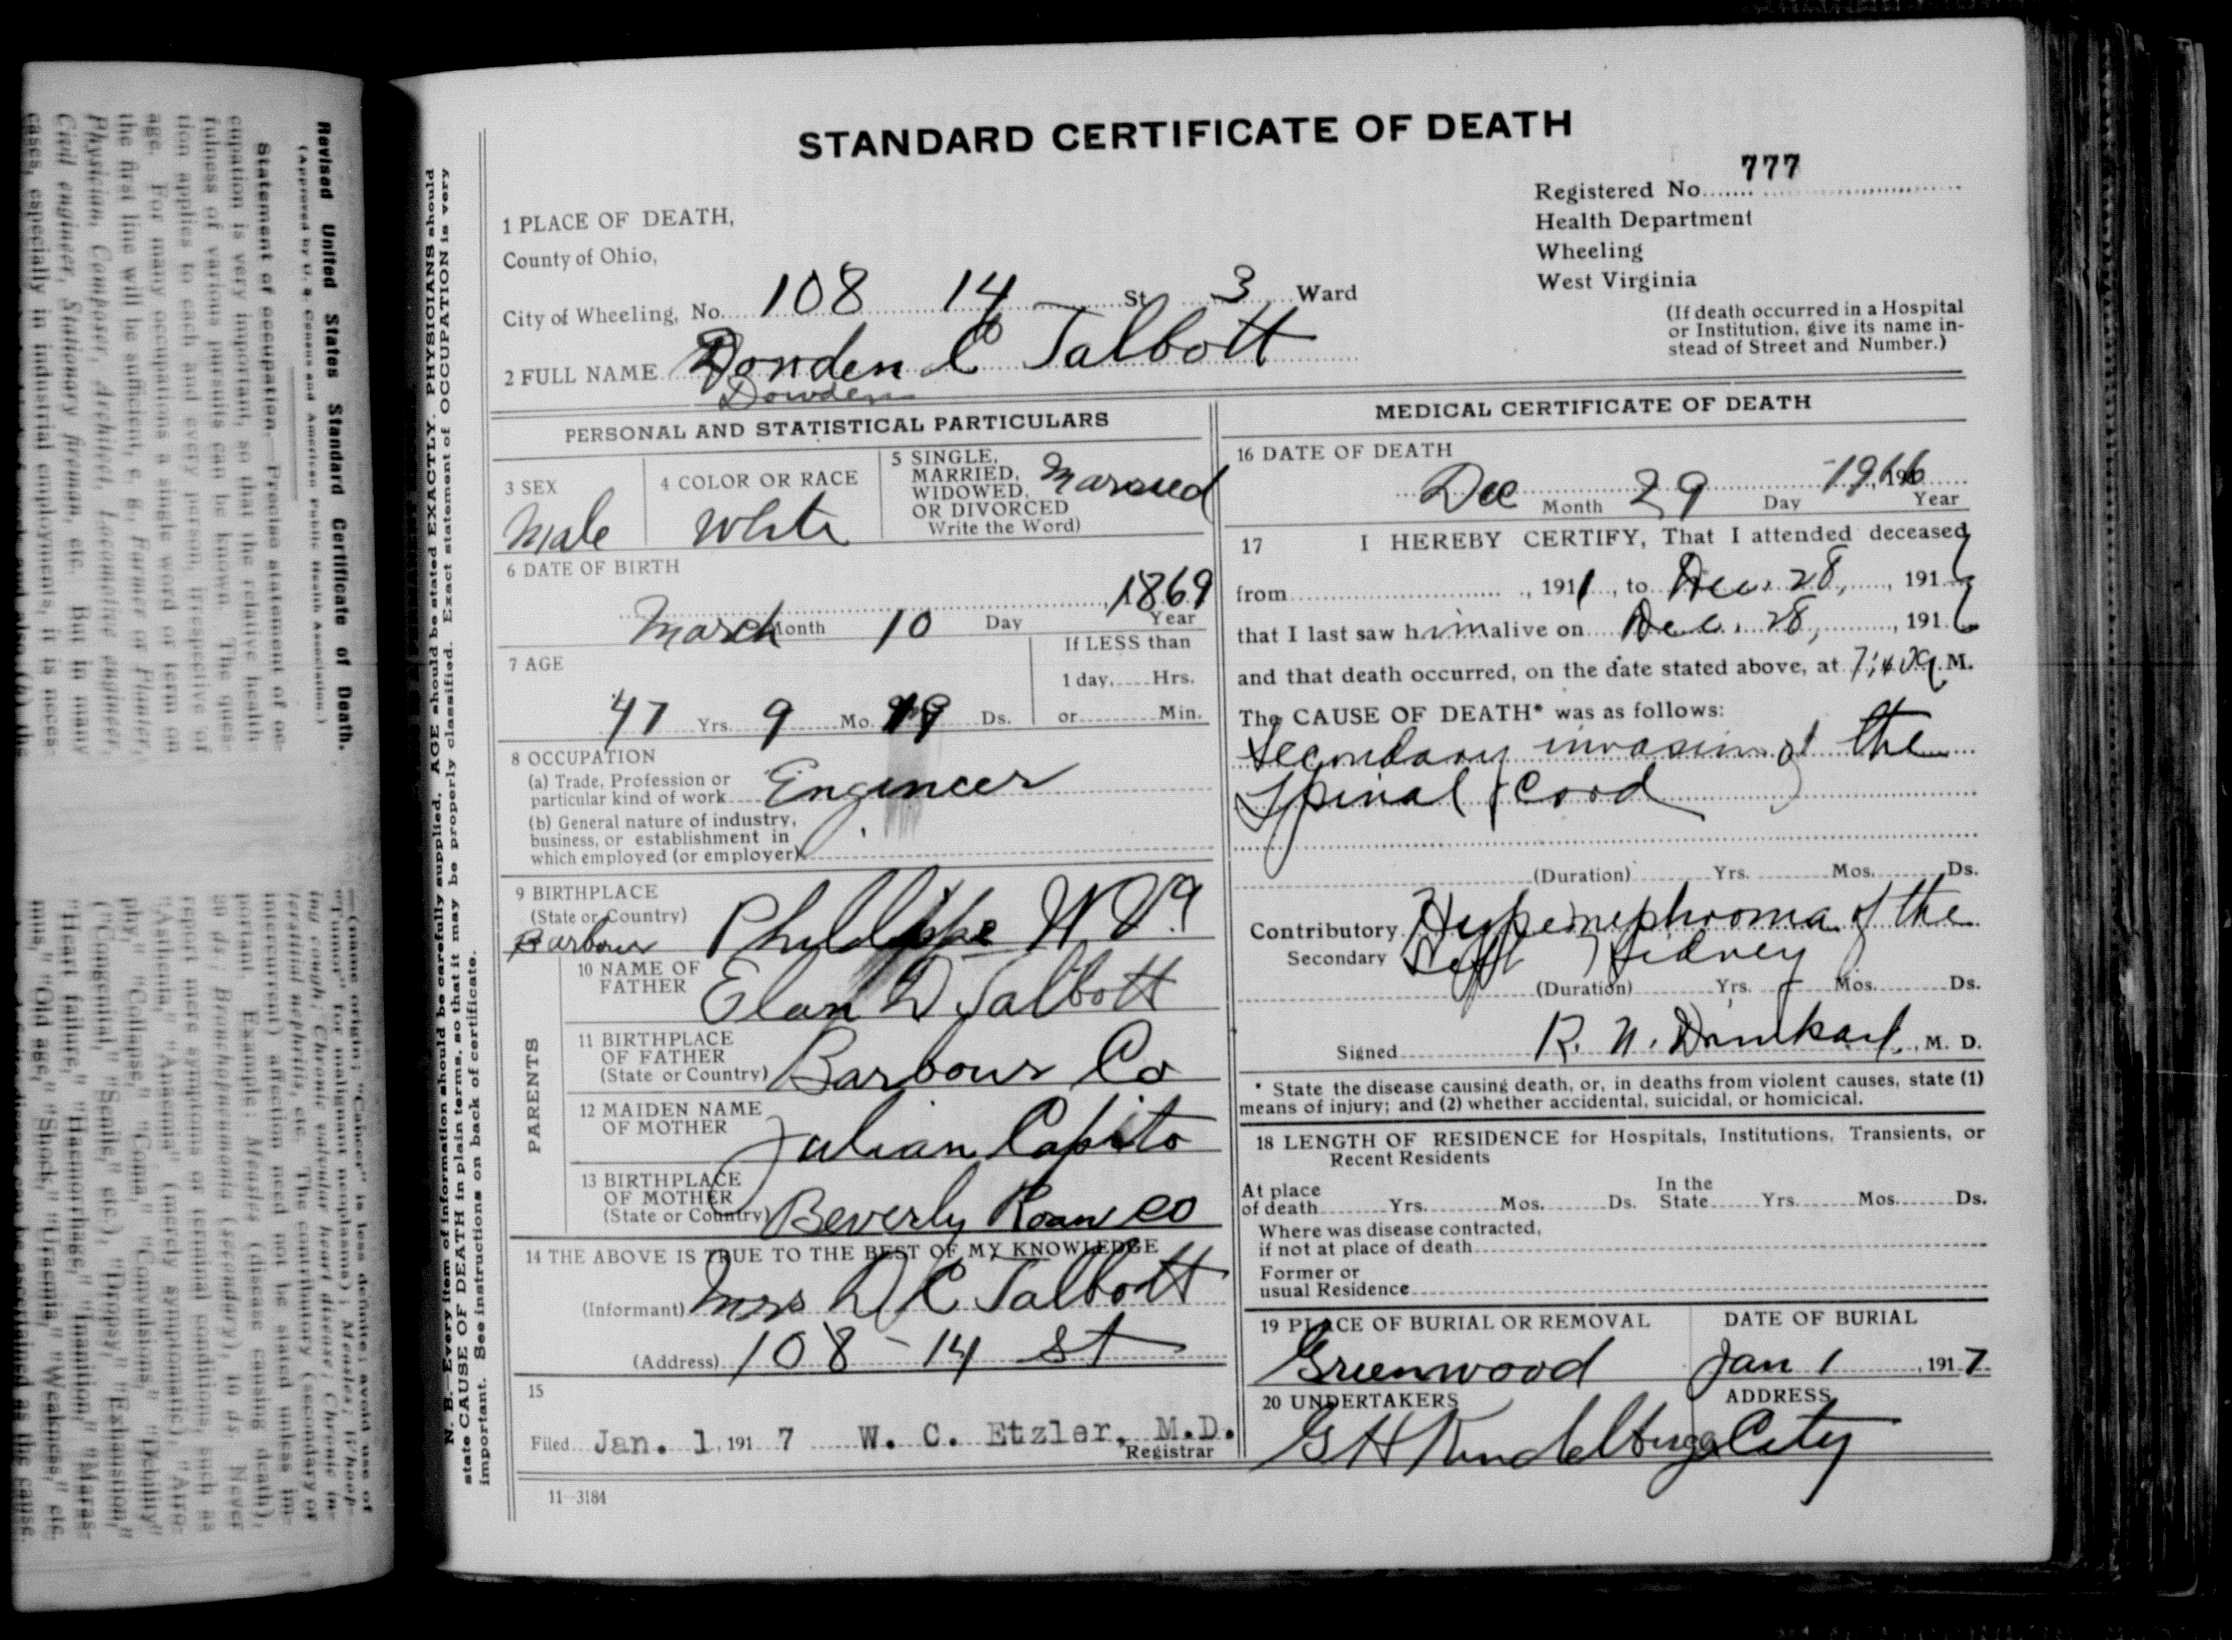 STANDARD CERTIFICATE OF DEATH
Registered No. 777
Health Department
Wheeling
West Virginia
(If death occurred in a Hospital
or Institution, give its name in-
stead of Street and Number.)
1 PLACE OF DEATH,
County of Ohio,
City of Wheeling, No. 108 14 St. 3 Ward
2 FULL NAME Dowden C Talbott
Dowden
PERSONAL AND STATISTICAL PARTICULARS
3 SEX
Male
4 COLOR OR RACE
White
5 SINGLE,
MARRIED,
WIDOWED,
OR DIVORCED
Write the Word)
Married
6 DATE OF BIRTH
March Month 10 Day 1869 Year
7 AGE
47 Yrs. 9 Mo. 19 Ds.
If LESS than
1 day, Hrs.
or Min.
8 OCCUPATION
(a) Trade, Profession or
particular kind of work Engineer
(b) General nature of industry,
business, or establishment in
which employed (or employer)
9 BIRTHPLACE
(State or Country)
Barbour Phillippe W Va
PARENTS
10 NAME OF
FATHER
Elan D Talbott
11 BIRTHPLACE
OF FATHER
(State or Country) Barbour Co
12 MAIDEN NAME
OF MOTHER
Julian Capito
13 BIRTHPLACE
OF MOTHER
(State or Country) Beverly Roan co
14 THE ABOVE IS TRUE TO THE BEST OF MY KNOWLEDGE
(Informant) Mrs D C Talbott
(Address) 108 - 14 St
15
Filed Jan. 1 191 7 W. C. Etzler, M.D.
Registrar
11-3184
MEDICAL CERTIFICATE OF DEATH
16 DATE OF DEATH
Dec Month 29 Day 1916 Year
17 I HEREBY CERTIFY, That I attended deceased
from , 191 , to Dec. 28, , 191 6
that I last saw him alive on Dec. 28, , 191 6
and that death occurred, on the date stated above, at 7:40 a. M.
The CAUSE OF DEATH* was as follows:
Secondary invasion of the
Spinal Cord
(Duration) Yrs. Mos. Ds.
Contributory Hypernephroma of the
Secondary Left Kidney
(Duration) Yrs. Mos. Ds.
Signed R. N. Drinkard, M. D.
* State the disease causing death, or, in deaths from violent causes, state (1)
means of injury; and (2) whether accidental, suicidal, or homicical.
18 LENGTH OF RESIDENCE for Hospitals, Institutions, Transients, or
Recent Residents
At place
of death Yrs. Mos. Ds.
In the
State Yrs. Mos. Ds.
Where was disease contracted,
if not at place of death
Former or
usual Residence
19 PLACE OF BURIAL OR REMOVAL
Greenwood
DATE OF BURIAL
Jan 1 , 191 7
20 UNDERTAKERS
G H Kindelberger
ADDRESS
City
N. B.—Every item of information should be carefully supplied. AGE should be stated EXACTLY. PHYSICIANS should
state CAUSE OF DEATH in plain terms, so that it may be properly classified. Exact statement of OCCUPATION is very
important. See instructions on back of certificate.
Revised United States Standard Certificate of Death.
(Approved by U. S. Census and American Public Health Association.)
Statement of occupation.—Precise statement of oc-
cupation is very important, so that the relative health-
fulness of various pursuits can be known. The ques-
tion applies to each and every person, irrespective of
age. For many occupations a single word or term on
the first line will be sufficient, e. g., Farmer or Planter,
Physician, Compositor, Architect, Locomotive engineer,
Civil engineer, Stationary fireman, etc. But in many
cases, especially in industrial employments, it is neces-